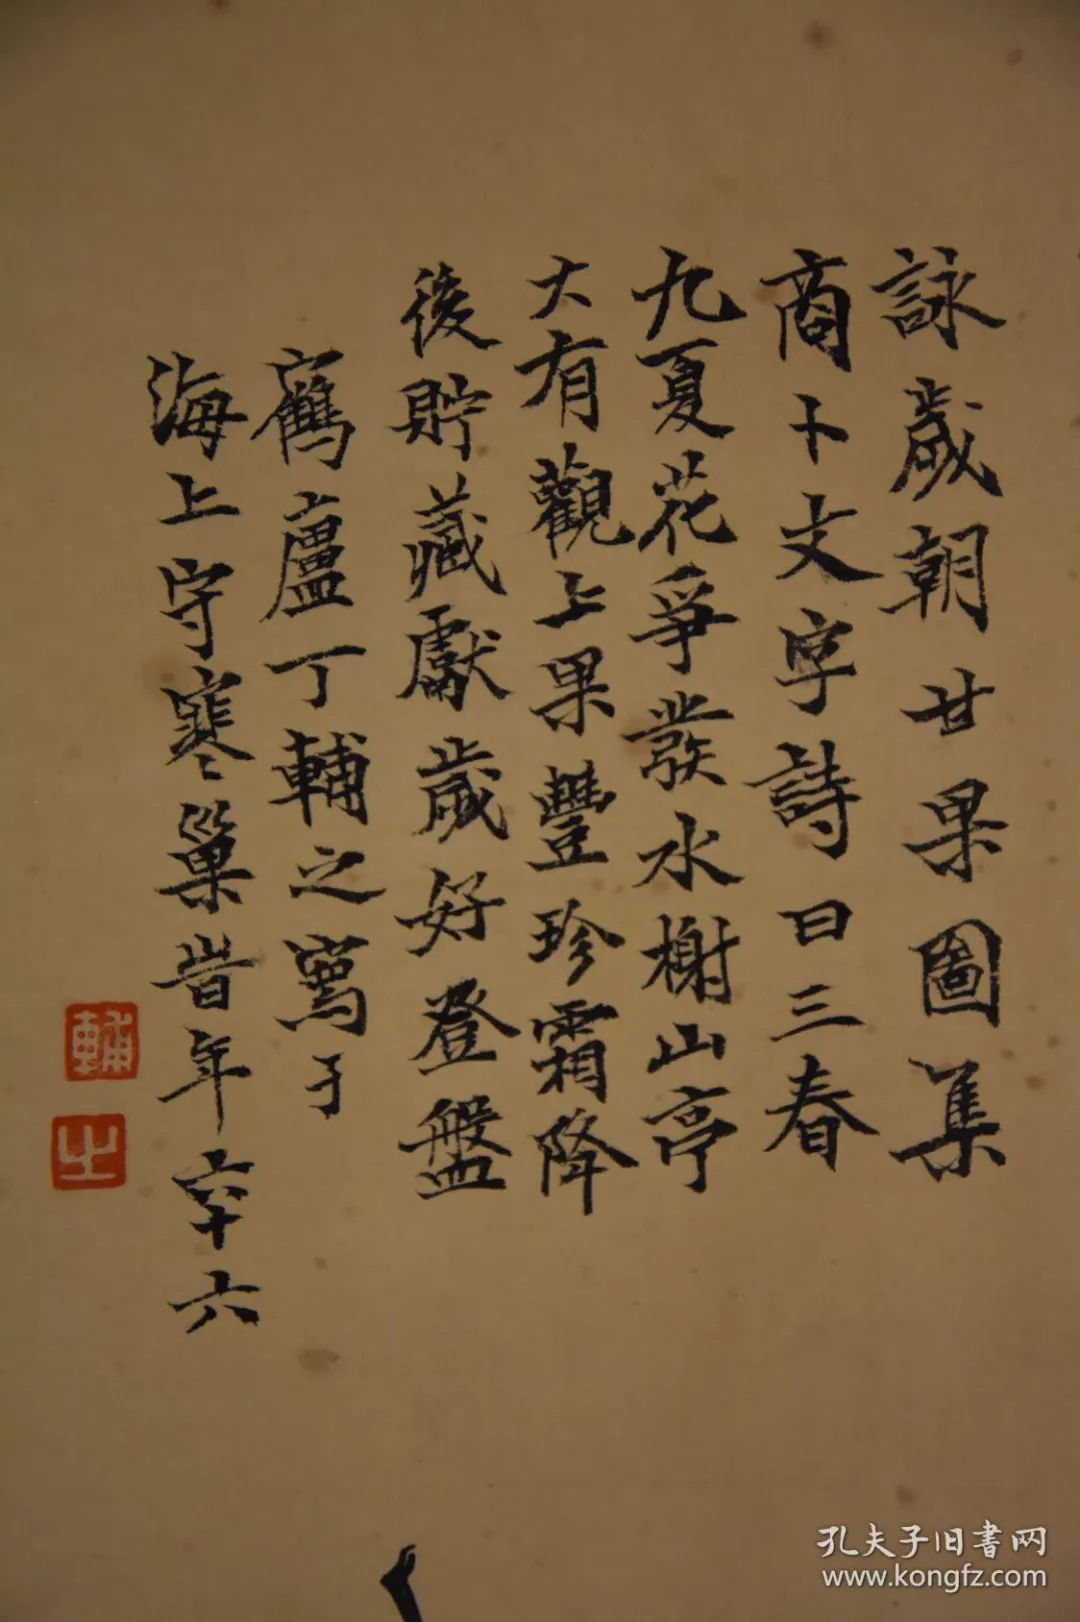 詠歲朝甘果圖集
商卜文字詩曰三春
九夏花爭發水榭山亭
大有觀上果豐珍霜降
後貯藏獻歲好登盤
鶴廬丁輔之寫于
海上守寒巢昔年六十六
輔
之
孔夫子旧書网
www.kongfz.com